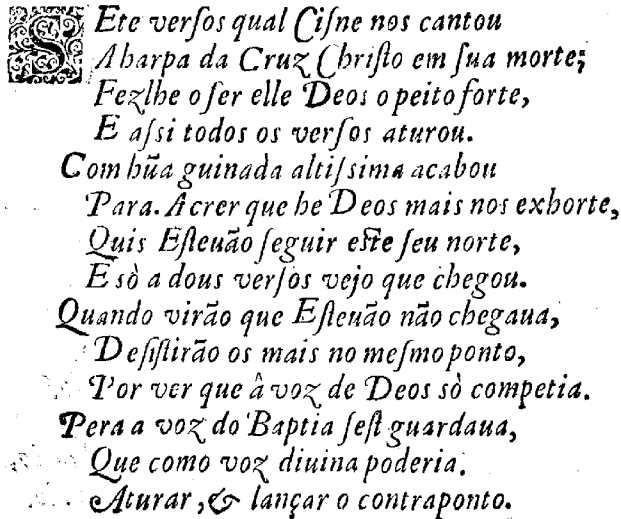 Sete verſos qual Ciſne nos cantou
A harpa da Cruz Chriſto em ſua morte;
Fezlhe o ſer elle Deos o peito forte,
E aſsi todos os verſos aturou.
Com hũa guinada altiſsima acabou
Para. A crer que he Deos mais nos exhorte,
Quis Eſteuão ſeguir eſte ſeu norte,
E sò a dous verſos vejo que chegou.
Quando virão que Eſteuão não chegaua,
Deſiſtirão os mais no meſmo ponto,
Por ver que â voz de Deos sò competia.
Pera a voz do Baptia ſeſt guardaua,
Que como voz diuina poderia.
Aturar, & lançar o contraponto.